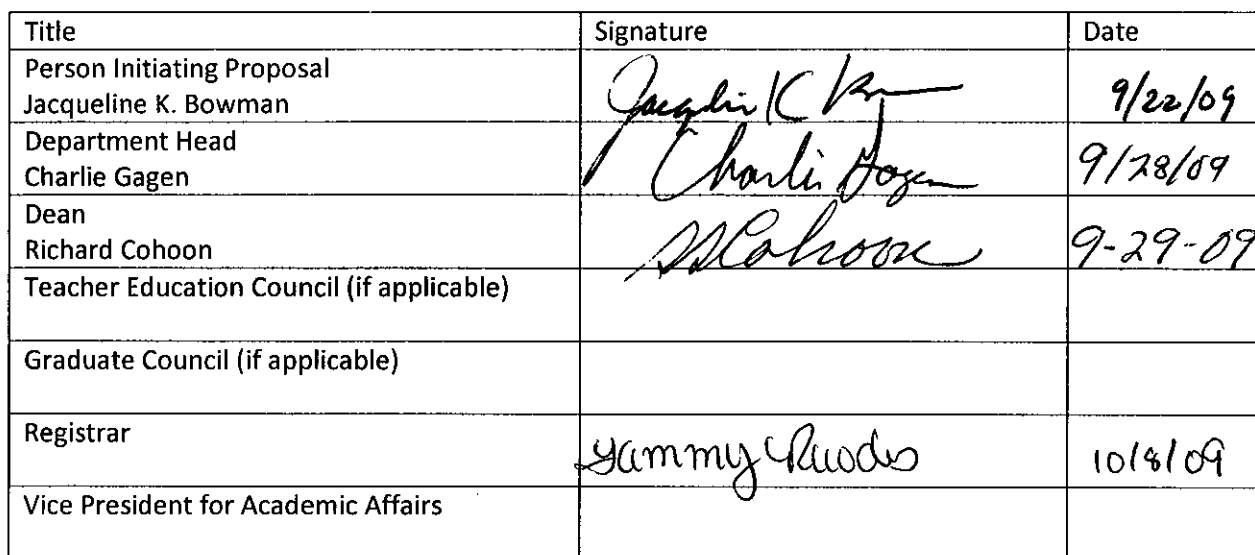 Title Signature Date
Person Initiating Proposal
Jacqueline K. Bowman Jacquelin K 9/22/09
Department Head
Charlie Gagen Charlie Gagen 9/28/09
Dean
Richard Cohoon Cohoon 9-29-09
Teacher Education Council (if applicable)
Graduate Council (if applicable)
Registrar
Tammy Rhodes 10/8/09
Vice President for Academic Affairs